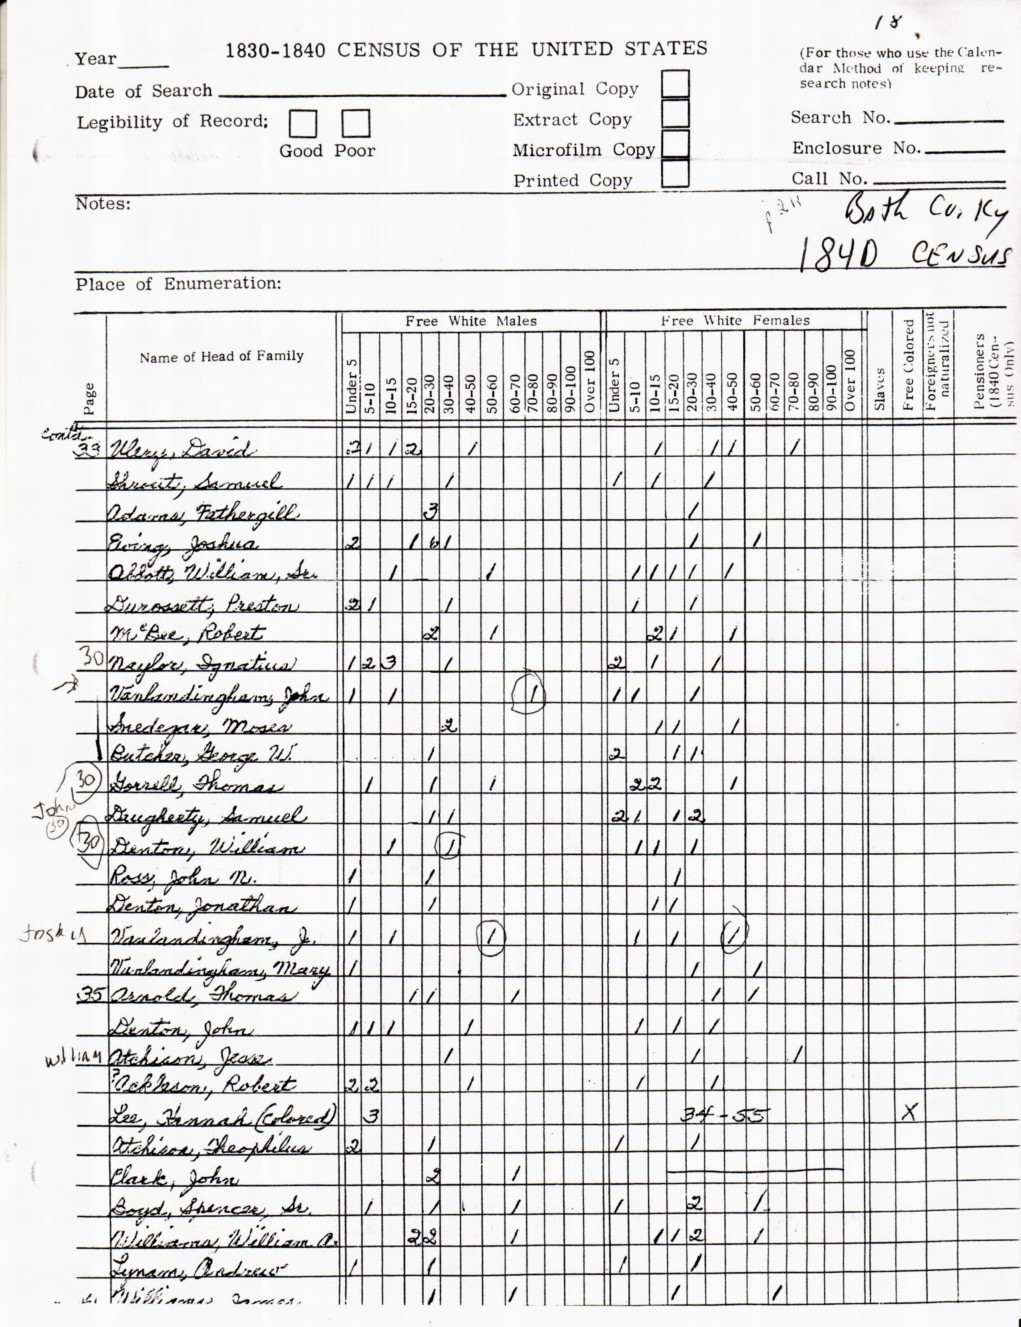 18
Year
1830-1840 CENSUS OF THE UNITED STATES
(For those who use the Calen-
dar Method of keeping re-
search notes)
Date of Search
Original Copy
Legibility of Record:
Extract Copy
Search No.
Good Poor
Microfilm Copy
Enclosure No.
Printed Copy
Call No.
Notes:
Bath Co, Ky
1840 CENSUS
Place of Enumeration:
Free White Males
Free White Females
Page
Name of Head of Family
Under 5
5-10
10-15
15-20
20-30
30-40
40-50
50-60
60-70
70-80
80-90
90-100
Over 100
Under 5
5-10
10-15
15-20
20-30
30-40
40-50
50-60
60-70
70-80
80-90
90-100
Over 100
Slaves
Free Colored
Foreigners not naturalized
Pensioners (1840 Census Only)
Contd.
33 Ulery, David 2 1 1 2 1 1 1 1 1
Shrout, Samuel 1 1 1 1 1 1 1
Adams, Fathergill 3 1
Ewing, Joshua 2 1 6 1 1 1
Abbott, William, Sr. 1 1 1 1 1 1 1
Durossett, Preston 2 1 1 1 1
McBee, Robert 2 1 2 1 1
30 Naylor, Ignatius 1 2 3 1 2 1 1
Vanlandingham, John 1 1 1 1 1 1
Snedegar, Moses 2 1 1 1
Butcher, George W. 1 2 1 1
30 Gorrell, Thomas 1 1 1 2 2 1
John
30
Daugherty, Samuel 1 1 2 1 1 2
30 Denton, William 1 1 1 1 1
Ross, John N. 1 1 1
Denton, Jonathan 1 1 1 1
Vanlandingham, Jr. 1 1 1 1 1 1
Vanlandingham, Mary 1 1 1
35 Arnold, Thomas 1 1 1 1 1
Denton, John 1 1 1 1 1 1 1
William Atchison, Jesse 1 1 1
? Ackleson, Robert 2 2 1 1 1
Lee, Hannah (Colored) 3 34-55 X
Atchison, Theophilus 2 1 1 1
Clark, John 2 1
Boyd, Spencer, Sr. 1 1 1 1 2 1
Williams, William A. 2 2 1 1 1 2 1
Lynam, Andrew 1 1 1 1
Williams, James 1 1 1 1